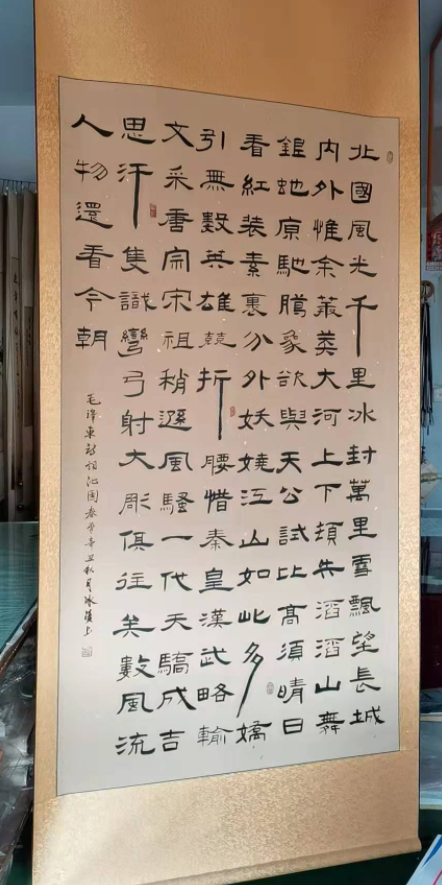 北國風光千里冰封萬里雪飄望長城
内外惟余莽莽大河上下頓失滔滔山舞
銀蛇原馳臘象欲與天公試比高須晴日
看紅装素裹分外妖嬈江山如此多嬌
引無數英雄競折腰惜秦皇漢武略輸
文采唐宗宋祖稍遜風騷一代天驕成吉
思汗隻識彎弓射大彫俱往矣數風流
人物還看今朝
毛澤東詩詞沁園春雪辛丑秋月